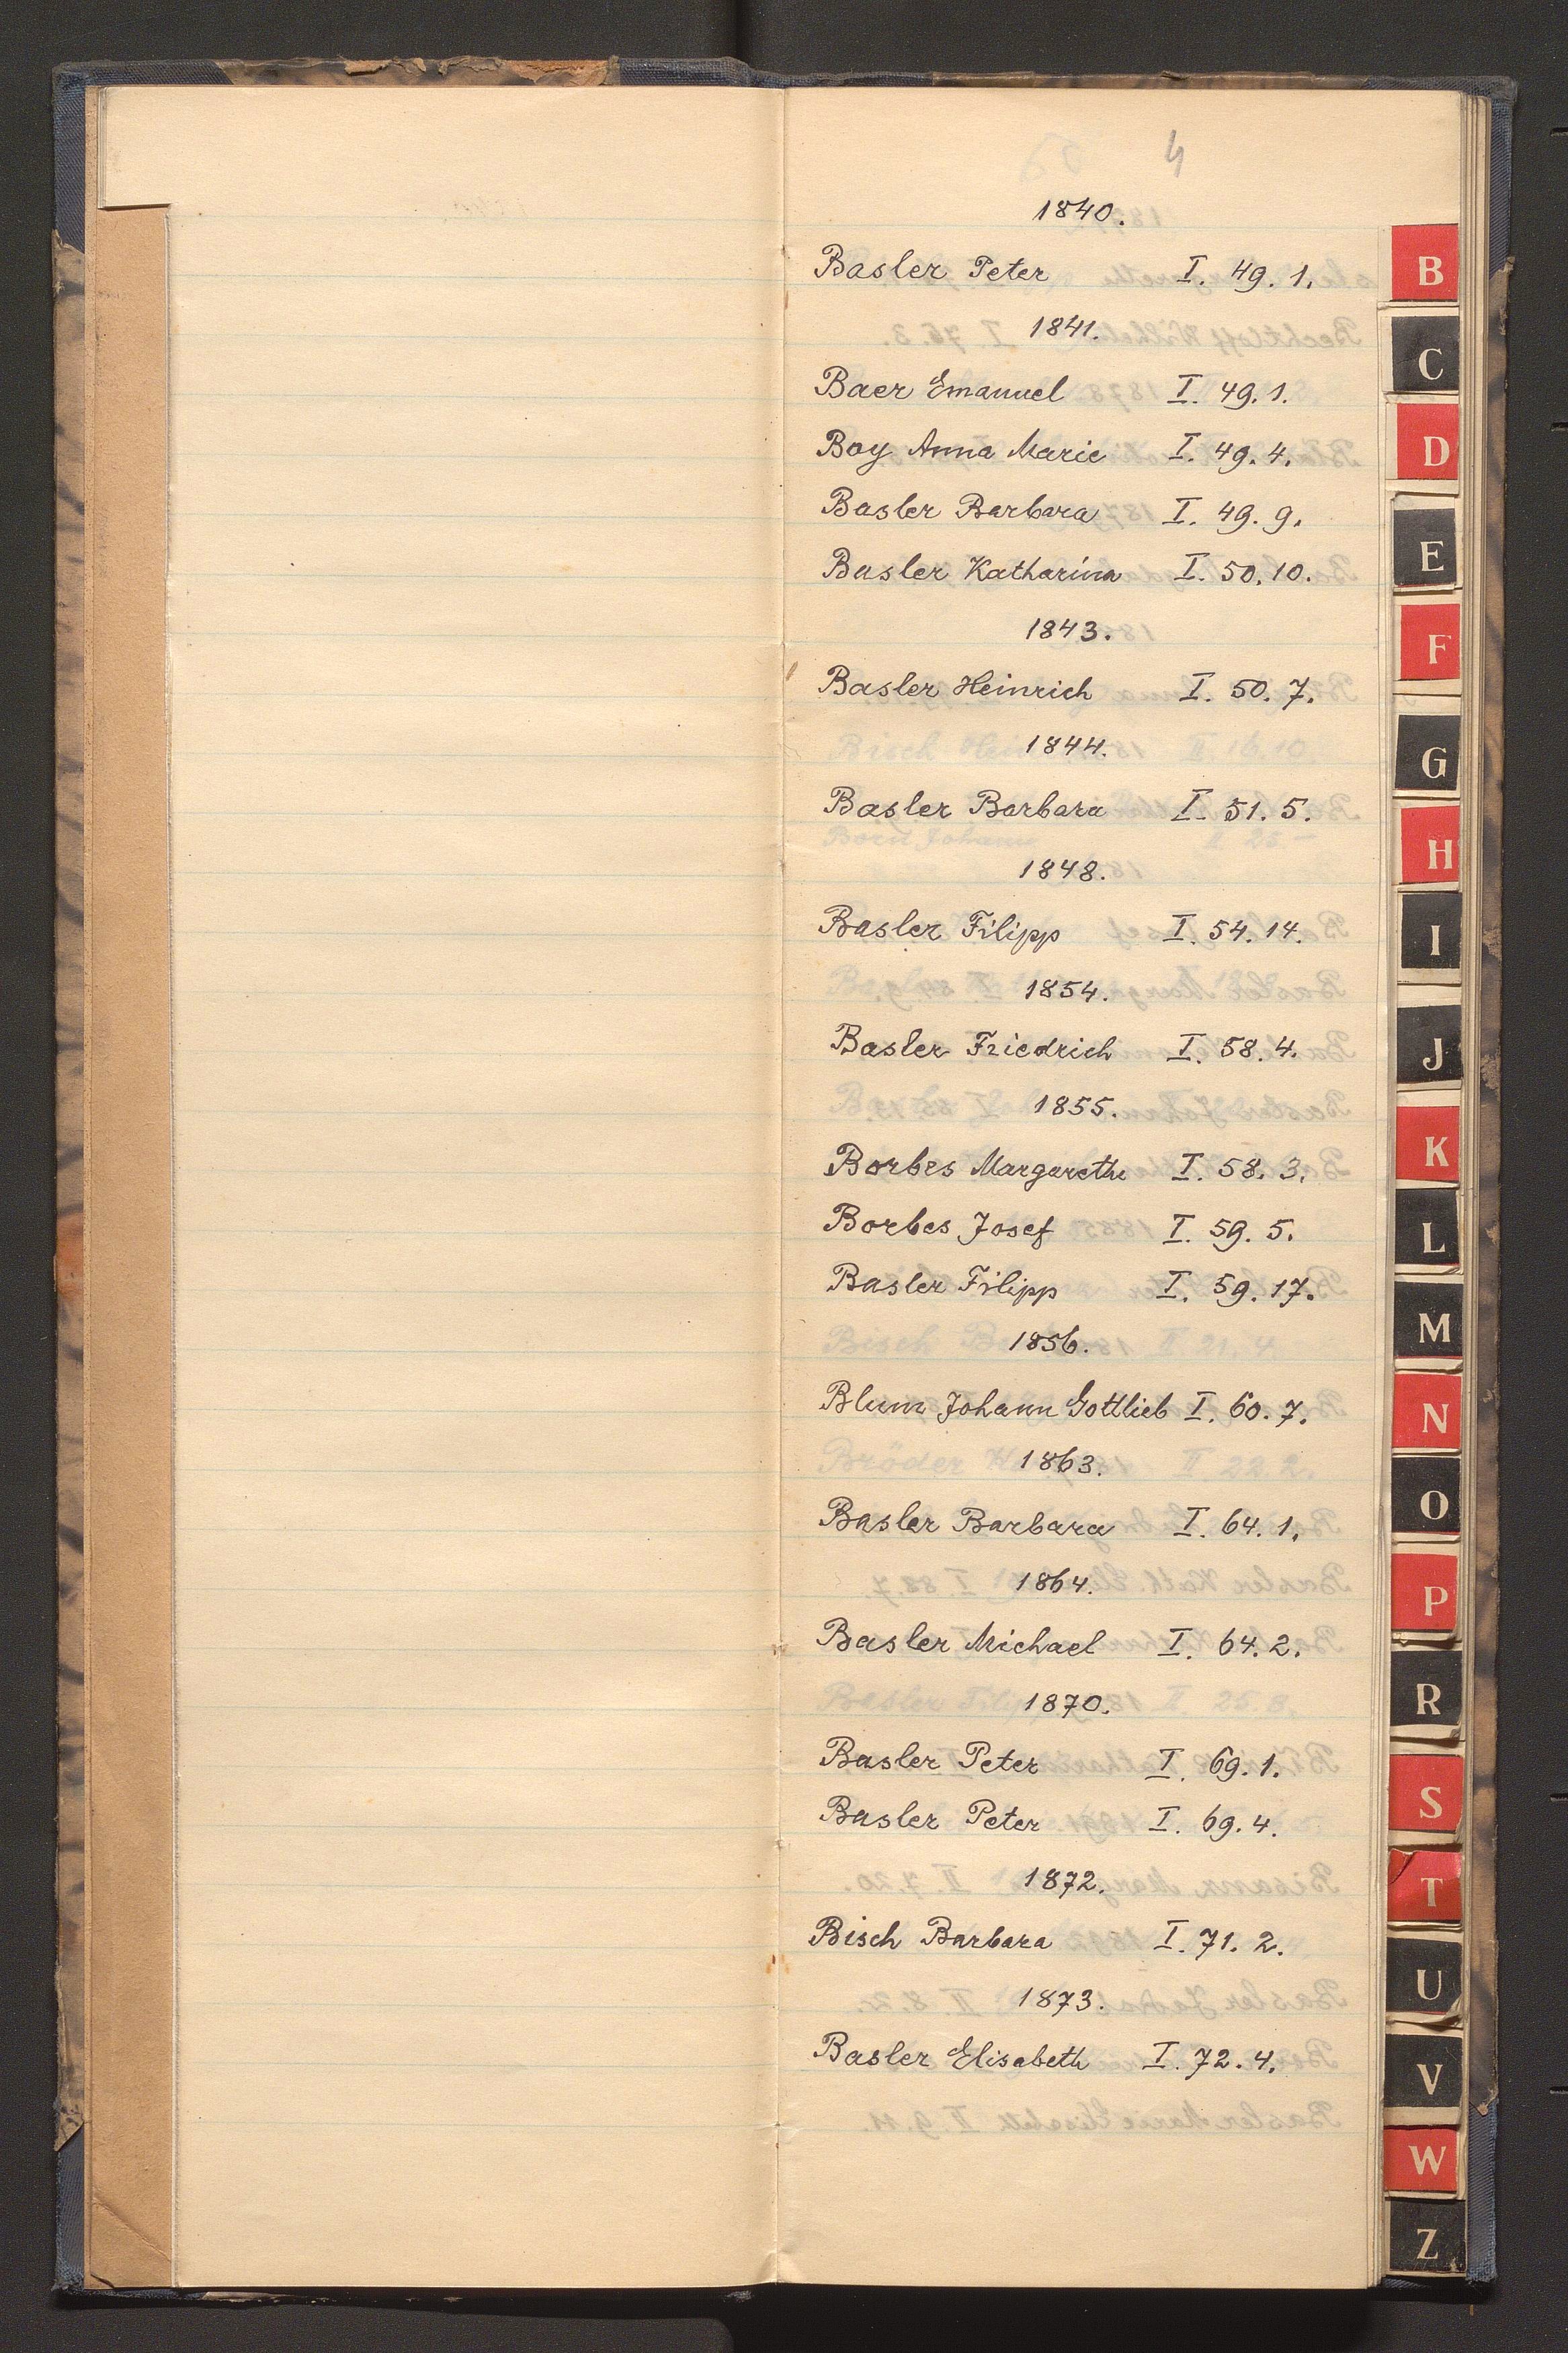 4
1840.
Basler Peter I. 49. 1.
1841.
Baer Emanuel I. 49. 1.
Boy Anna Marie I. 49. 4.
Basler Barbara I. 49. 9.
Basler Katharina I. 50. 10.
1843.
Basler Heinrich I. 50. 7.
1844.
Basler Barbara I. 51. 5.
1848.
Basler Filipp I. 54. 14.
1854.
Basler Friedrich I. 58. 4.
1855.
Borbes Margarethe I. 58. 3.
Borbes Josef I. 59. 5.
Basler Filipp I. 59. 17.
1856.
Blum Johann Gottlieb I. 60. 7.
1863.
Basler Barbara I. 64. 1.
1864.
Basler Michael I. 64. 2.
1870.
Basler Peter I. 69. 1.
Basler Peter I. 69. 4.
1872.
Bisch Barbara I. 71. 2.
1873.
Basler Elisabeth I. 72. 4.
B
C
D
E
F
G
H
I
J
K
L
M
N
O
P
R
S
T
U
V
W
Z